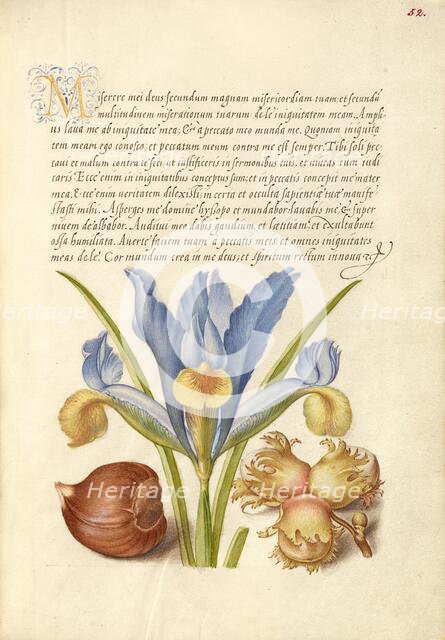 52.
Miserere mei deus secundum magnam misericordiam tuam; et secundũ
multitudinem miserationum tuarum dele iniquitatem meam. Ampli
us laua me ab iniquitate mea; & a peccato meo munda me. Quoniam iniquita
tem meam ego conosco, et peccatum meum contra me est semper. Tibi soli pec
caui et malum contra te feci, ut iustificeris in sermonibus tuis, et vincas cum iudi
caris Ecce enim in iniquitatibus conceptus sum; et in peccatis concepit me mater
mea. Ecce enim veritatem dilexisti, in certa et occulta sapientiae tuae manife
stasti mihi. Asperges me domine hyssopo et mundabor: lauabis me & super
niuem dealbabor. Auditui meo dabis gaudium et laetitiam; et exultabunt
ossa humiliata. Auerte faciem tuam a peccatis meis et omnes iniquitates
meas dele. Cor mundum crea in me deus, et spiritum rectum innoua &
Heritage Heritage
Heritage Heritage